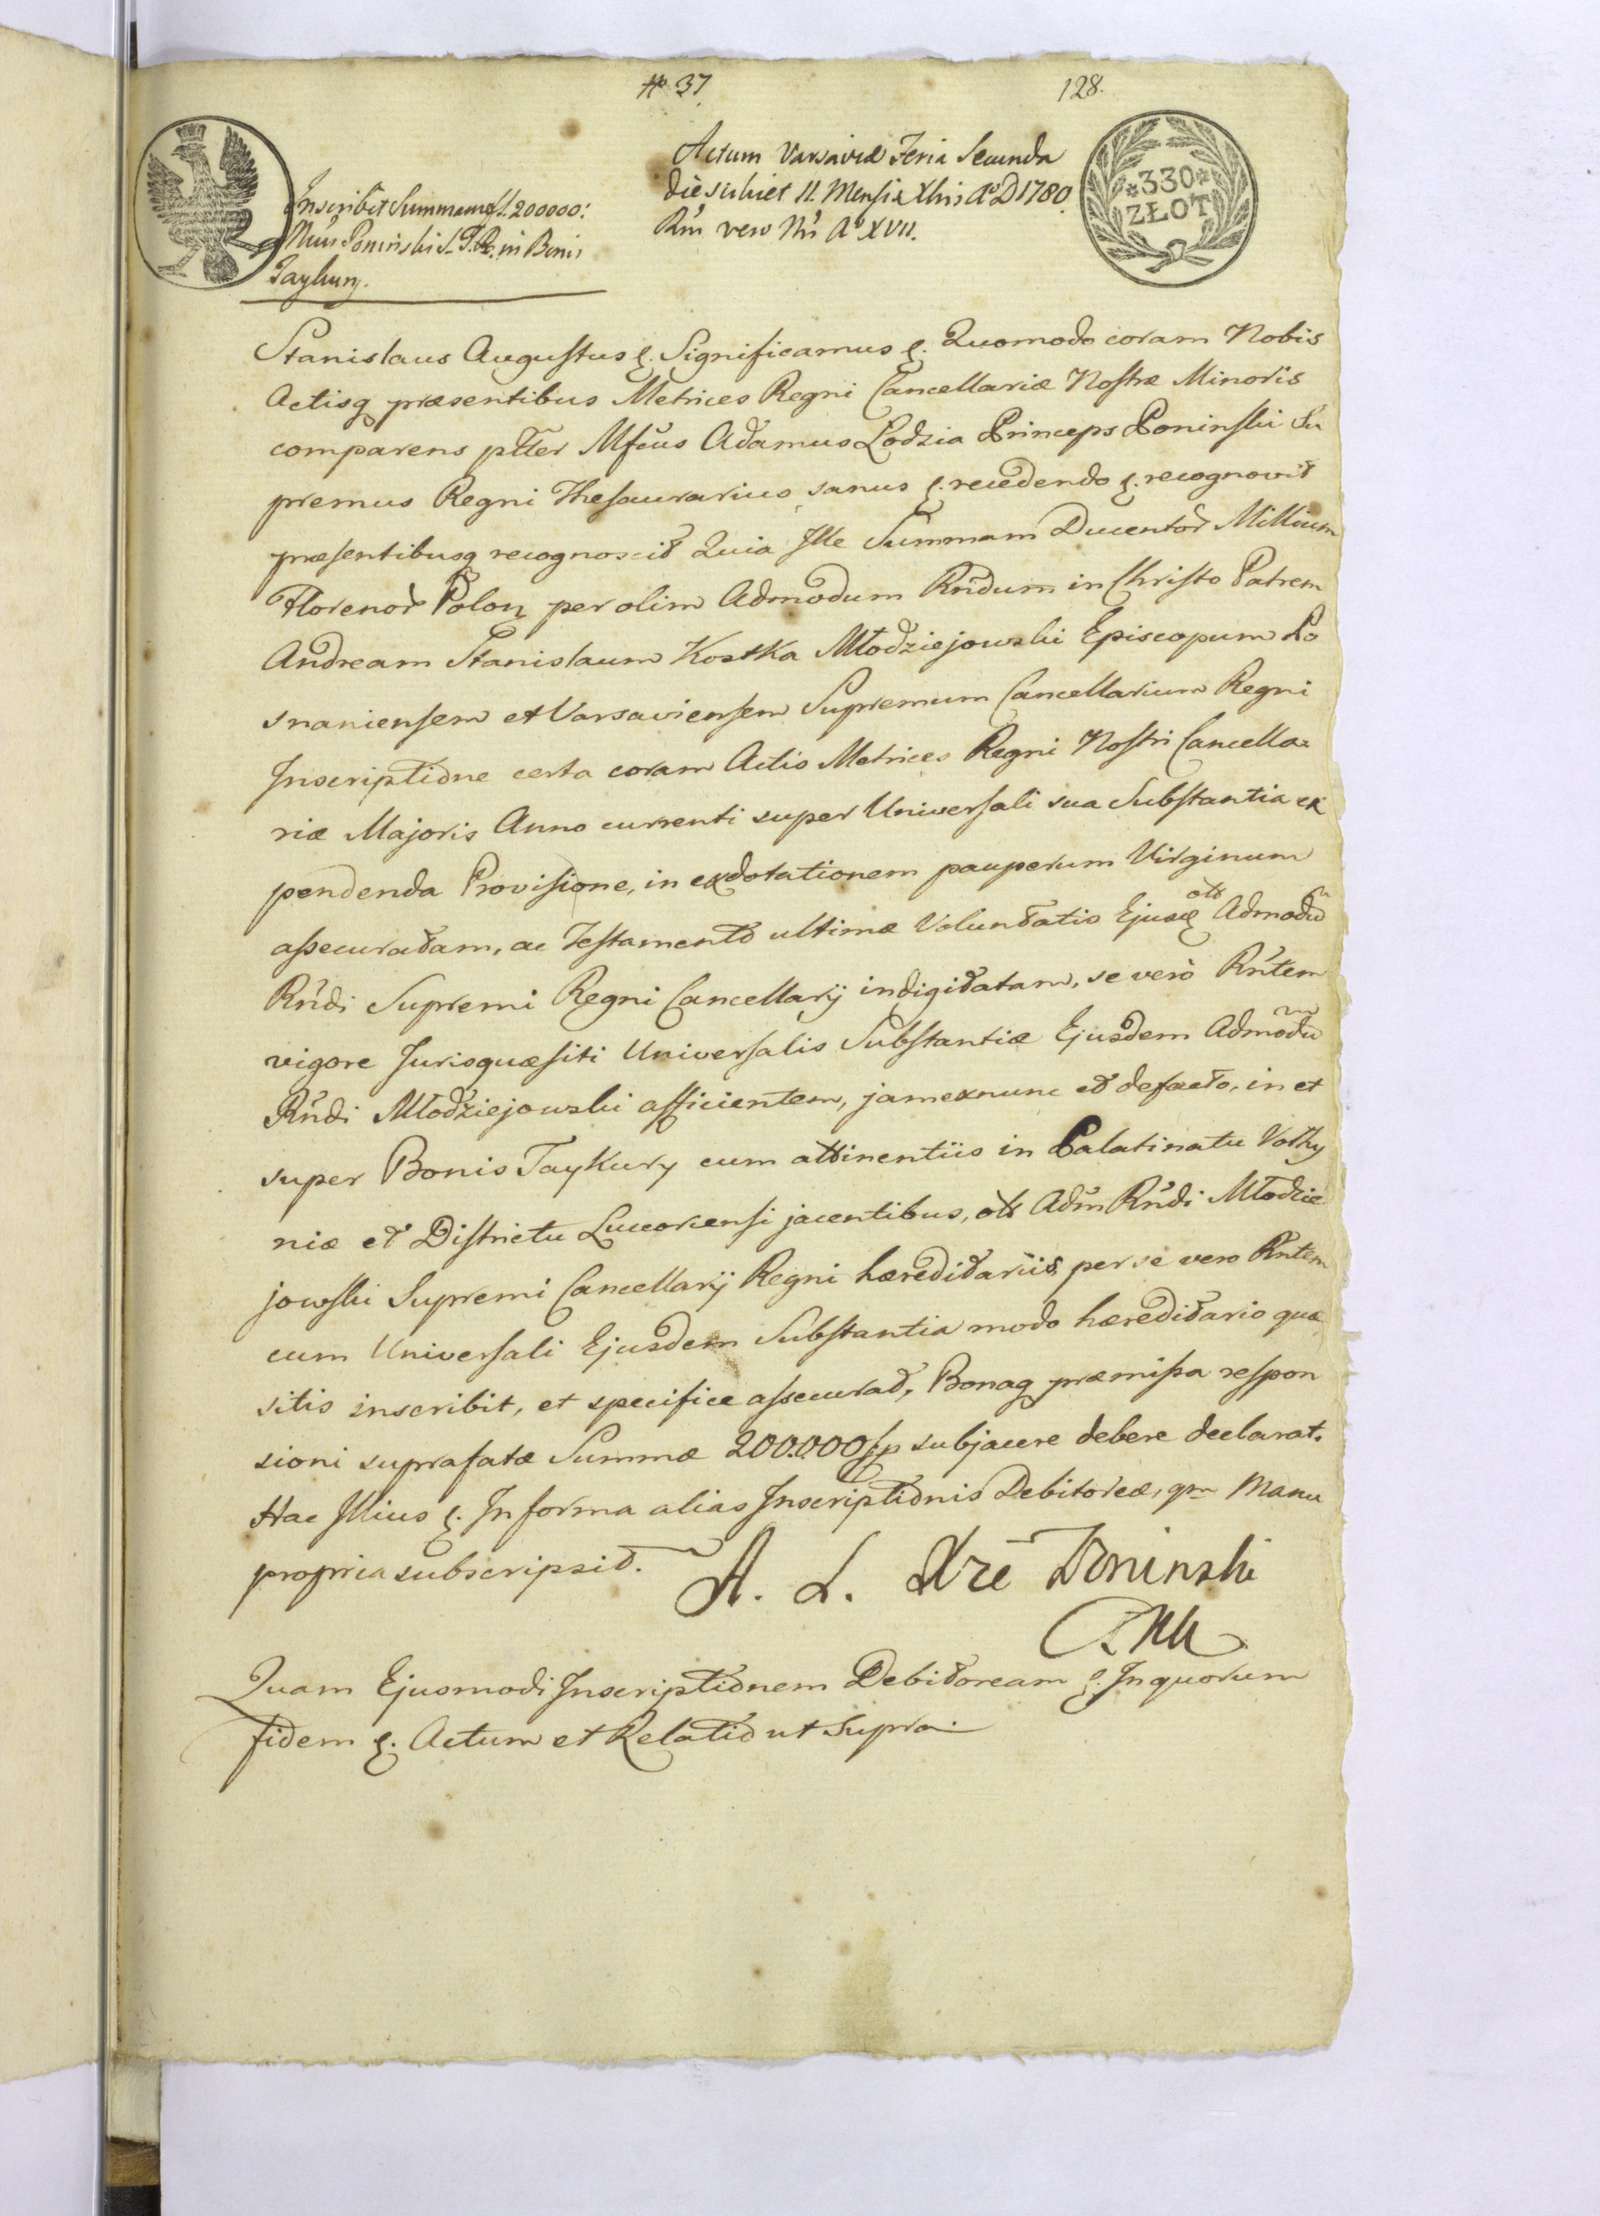 № 37.
128.
*330*
ZŁOT
Actum Varsaviæ Feria Secunda
die scilicet 11. Mensis Xbris A°D 1780.
Rni vero Nri A° XVII.
Inscribit Summam fl. 200000:
Mfcus Poninski S. T. R. in Bonis
Taykury.
Stanislaus Augustus &. Significamus &. Quomodo coram Nobis
Actisq præsentibus Metrices Regni Cancellariæ Nostræ Minoris
comparens pltter Mfcus Adamus Lodzia Princeps Poninski Su
premus Regni Thesaurarius, sanus &. recedendo &. recognovit
præsentibusq recognoscit Quia Ille Summam Ducentor Millium
Florenor Polon per olim Admodum Rndum in Christo Patrem
Andream Stanislaum Kostka Młodziejowski Episcopum Po
snaniensem et Varsaviensem Supremum Cancellarium Regni
Inscriptione certa coram Actis Metrices Regni Nostri Cancella=
riæ Majoris Anno currenti super Universali sua Substantia ex
pendenda Provisione, in exdotationem pauperum Virginum
assecuratam, ac Testamento ultimæ Voluntatis Ejusd olt Admodu
Rndi Supremi Regni Cancellarij indigitatam, se vero Rntem
vigore Jurisquæsiti Universalis Substantiæ Ejusdem Admodu
Rndi Młodziejowski afficientem, jamexnunc et defacto, in et
super Bonis Taykury cum attinentiis in Palatinatu Volhy
niæ et Districtu Luceoriensi jacentibus, olt Adm Rndi Młodzie
jowski Supremi Cancellarij Regni hæreditariis, per se vero Rntem
cum Universali Ejusdem Substantia modo hæreditario quæ
sitis inscribit, et specifice assecurat, Bonaq præmissa respon
sioni suprafatæ Summæ 200.000 flp subjacere debere declarat.
Hac Illius &. In forma alias Inscriptionis Debitoreæ, qm Manu
propria subscripsit.
A. L. Xże Poninski
P.W.K
Quam Ejusmodi Inscriptionem Debitoream &. In quorum
fidem &. Actum et Relatio ut Supra.